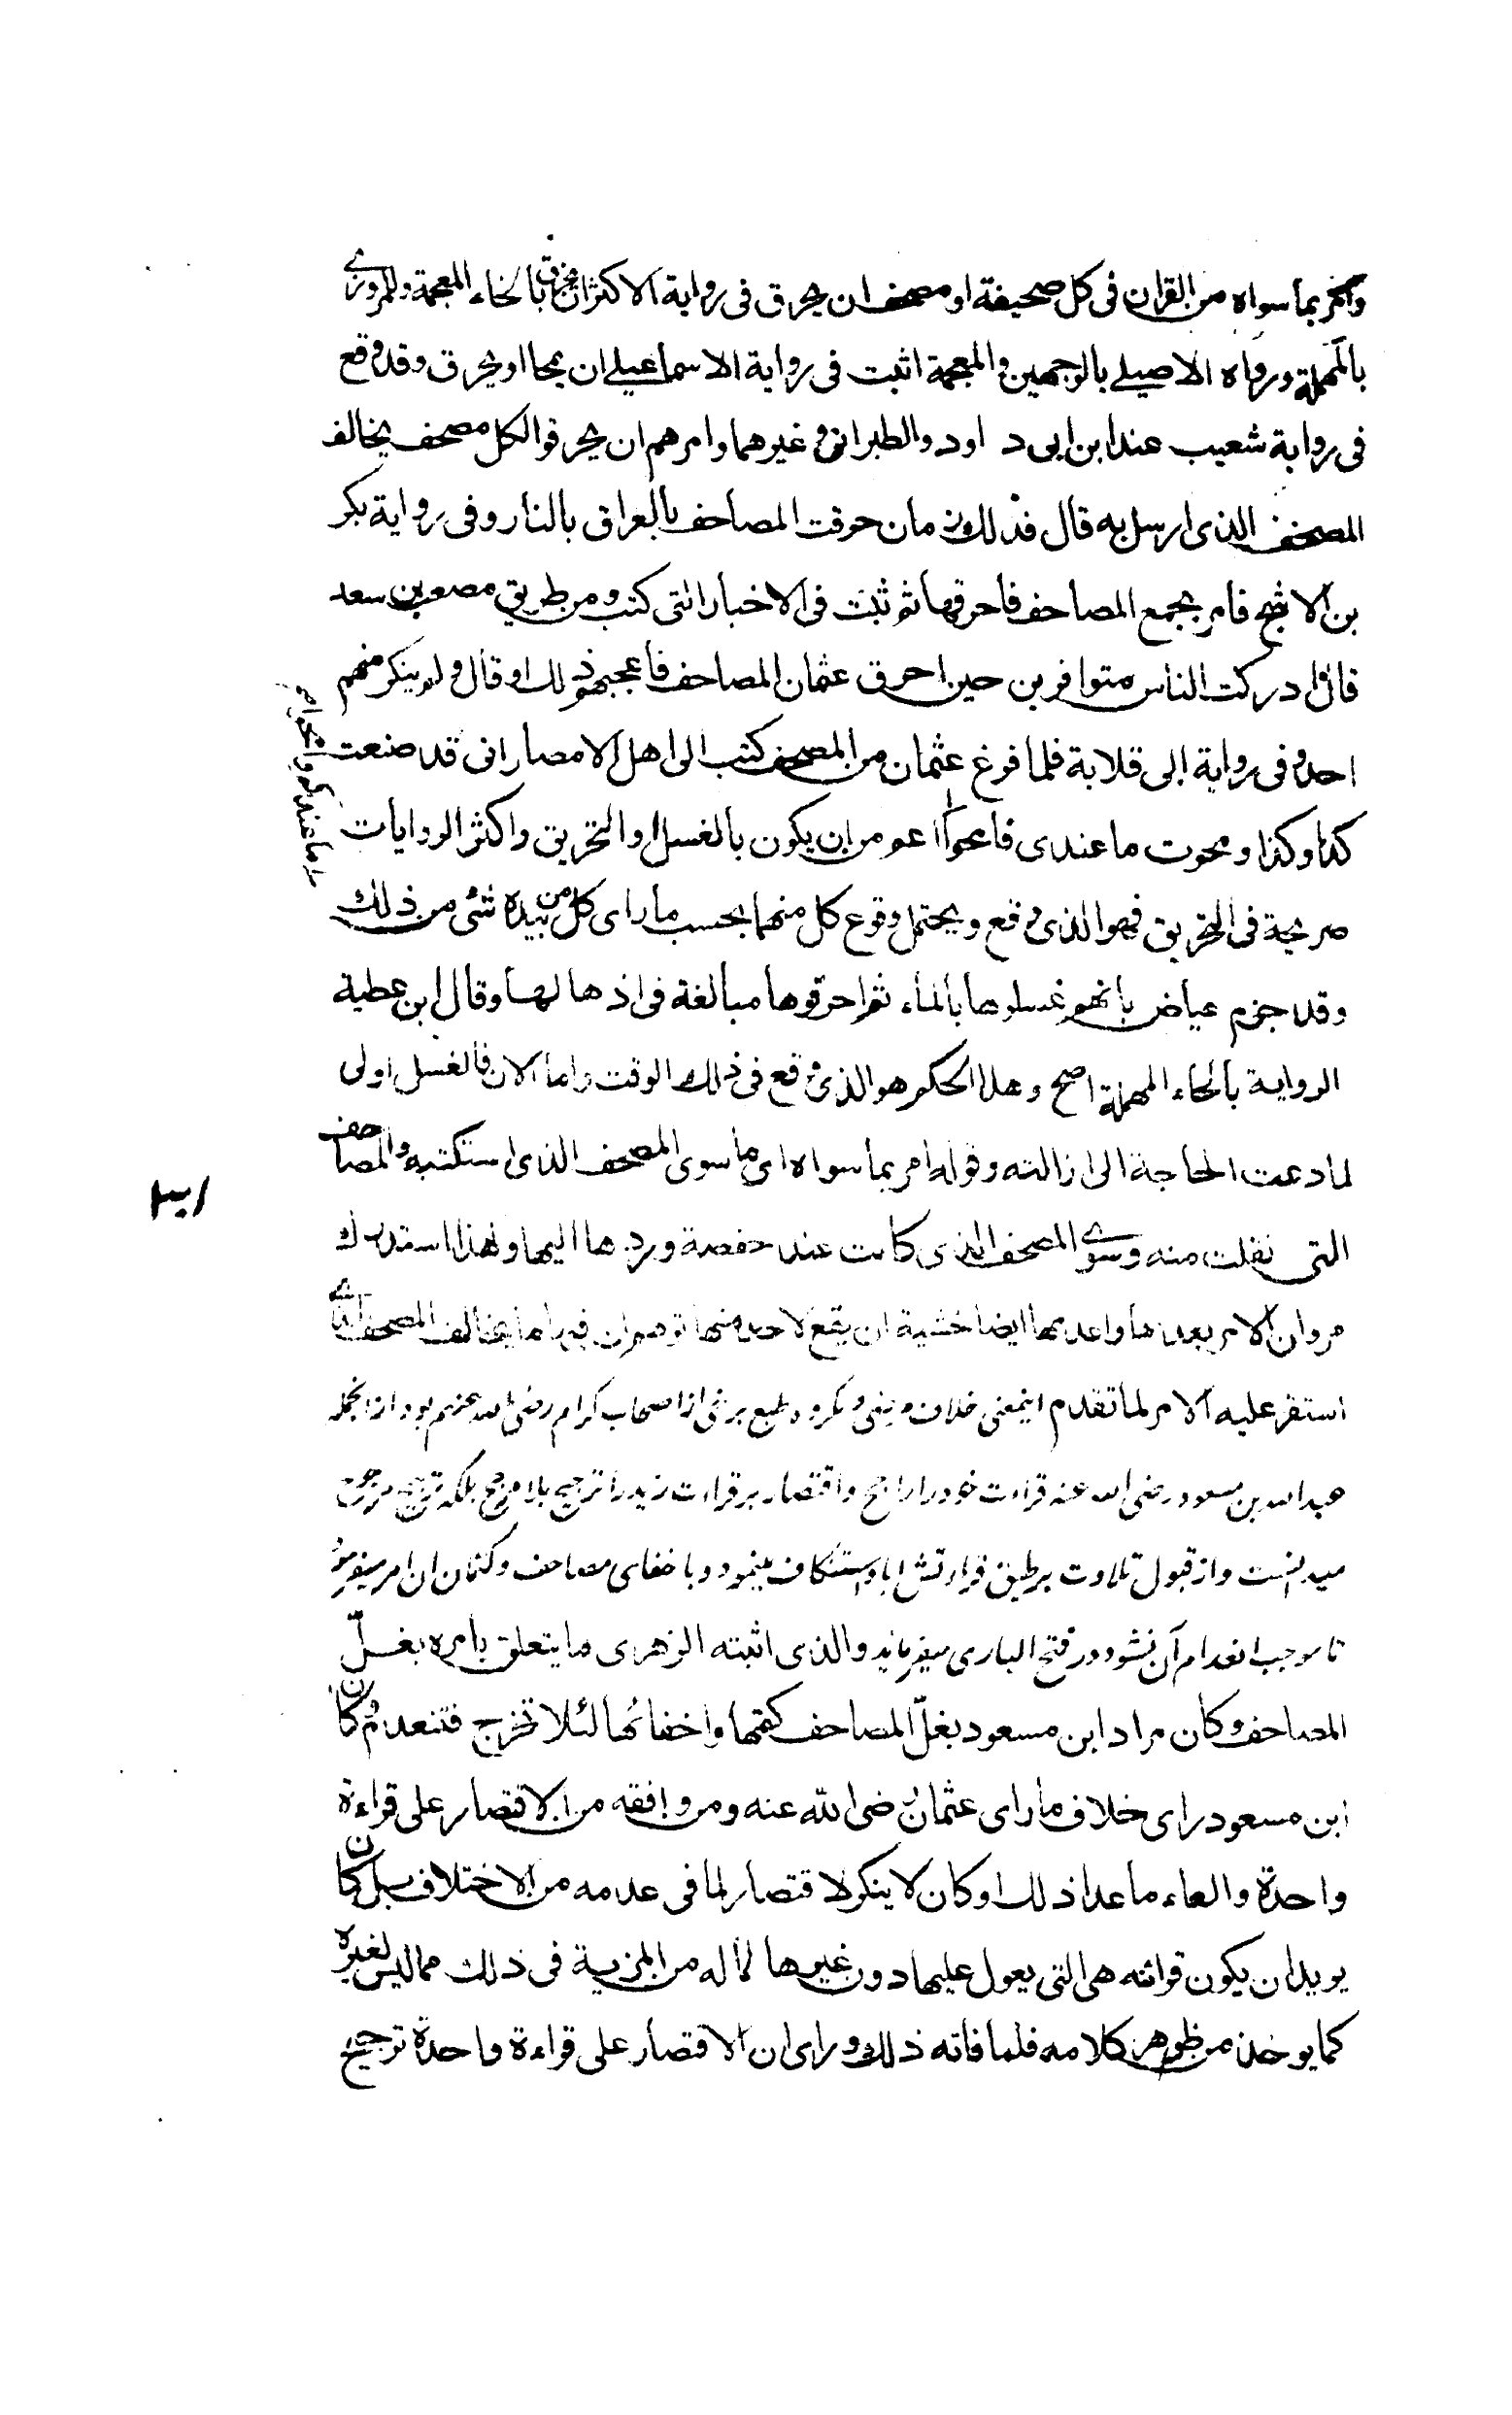 وامر بما سواه من القران فى كل صحيفة او مصحف ان يحرق فى رواية الاكثر ان يخرق بالخاء المعجمة وللمروزى
بالمهملة ورواه الاصيلے بالوجهين والمعجمة اثبت فى رواية الاسماعيلے ان يمحا او يحرق وقد وقع
فى رواية شعيب عند ابن ابى داود والطبرانى وغيرهما وامرهم ان يحرقوا كل مصحف يخالف
المصحف الذى ارسل به قال فذلك زمان حرقت المصاحف بالعراق بالنار وفى رواية بكر
بن الاشج فامر بجمع المصاحف فاحرقها ثم ثبت فى الاخبار التى كتب ومن طريق مصعب بن سعد
قال ادركت الناس متوافرين حين احرق عثمان المصاحف فاعجبهم ذلك او قال ولم ينكر منهم
احد وفى رواية ابى قلابة فلما فرغ عثمان من المصحف كتب الى اهل الامصار انى قد صنعت
كذا وكذا ومحوت ما عندى فامحوا اعم من ان يكون بالغسل او التحريق واكثر الروايات
صريحة فى التحريق فهو الذى وقع ويحتمل وقوع كل منهما بحسب ما راى كل من بيده شئ من ذلك
وقد جزم عياض بانهم غسلوها بالماء ثم احرقوها مبالغة فى اذهابها وقال ابن عطية
الرواية بالحاء المهملة اصح وهذا الحكم هو الذى وقع فى ذلك الوقت واما الان فالغسل اولى
لما دعت الحاجة الى ازالته وقوله امر بما سواه اى ما سوى المصحف الذى استكتبه والمصاحف
التى نقلت منه وسوى المصحف الذى كانت عند حفصة وردها اليها ولهذا استدرك
مروان الامر بعدها واعدمها ايضا خشية ان يقع لاحد منها توهم ان فيها ما يخالف المصحف الذى
استقر عليه الامر لما تقدم اینمعنی خلاف ومکروه طبع برخی از اصحاب کرام رضی الله عنهم بود ازانجمله
عبد الله بن مسعود رضى الله عنه قراءت خود را راجح واقتصار بر قراءت زید را ترجیح بلا مرجح بلکه ترجیح مرجوح
میدانست واز قبول تلاوت بر طبق قراءتش ابا واستنکاف مینمود وباخفای مصاحف وکتمان ان امر میفرمود
تا موجب انعدام آن نشود ودر فتح الباری میفرماید والذى اثبته الزهرى ما يتعلق بامره بغلّ
المصاحف وكان مراد ابن مسعود بغلّ المصاحف كتمها واخفائها لئلا تخرج فتنعدم وكان
ابن مسعود راى خلاف ما راى عثمان رضى الله عنه ومن وافقه من الاقتصار على قراءة
واحدة والغاء ما عدا ذلك او كان لا ينكر الاقتصار لما فى عدمه من الاختلاف بل كان
يريد ان يكون قرائته هى التى يعول عليها دون غيرها لما له من المزية فى ذلك مما ليس لغيره
كما يوخذ من ظاهر كلامه فلما فاته ذلك وراى ان الاقتصار على قراءة واحدة ترجيح